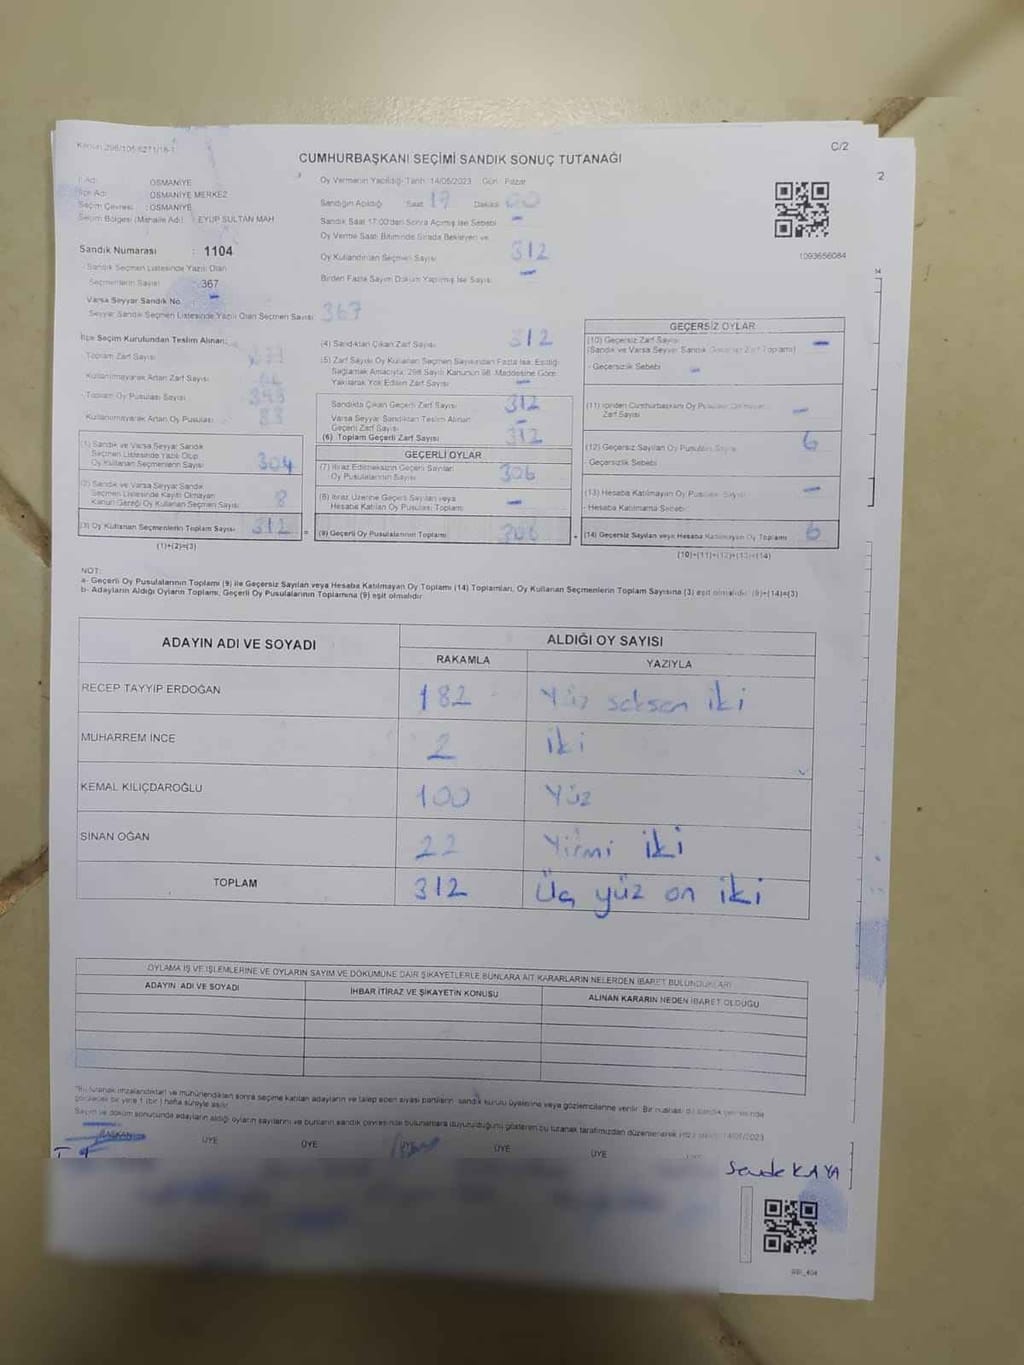 Kanun 298/105-6271/16-1
C/2
CUMHURBAŞKANI SEÇİMİ SANDIK SONUÇ TUTANAĞI
2
İl Adı : OSMANİYE
İlçe Adı : OSMANİYE MERKEZ
Seçim Çevresi : OSMANİYE
Seçim Bölgesi (Mahalle Adı) : EYUP SULTAN MAH
Sandık Numarası : 1104
Sandık Seçmen Listesinde Yazılı Olan
Seçmenlerin Sayısı : 367
Varsa Seyyar Sandık No. -
Seyyar Sandık Seçmen Listesinde Yazılı Olan Seçmen Sayısı 367
Oy Vermenin Yapıldığı Tarih : 14/05/2023 Gün : Pazar
Sandığın Açıldığı Saat 17 Dakika 00
Sandık Saat 17:00'dan Sonra Açılmış İse Sebebi -
Oy Verme Saati Bitiminde Sırada Bekleyen ve
Oy Kullandırılan Seçmen Sayısı 312
Birden Fazla Sayım Döküm Yapılmış İse Sayısı -
1093656084
İlçe Seçim Kurulundan Teslim Alınan;
Toplam Zarf Sayısı
Kullanılmayarak Artan Zarf Sayısı
Toplam Oy Pusulası Sayısı
Kullanılmayarak Artan Oy Pusulası 83
(1) Sandık ve Varsa Seyyar Sandık
Seçmen Listesinde Yazılı Olup
Oy Kullanan Seçmenlerin Sayısı 304
(2) Sandık ve Varsa Seyyar Sandık
Seçmen Listesinde Kayıtlı Olmayan
Kanun Gereği Oy Kullanan Seçmen Sayısı 8
(3) Oy Kullanan Seçmenlerin Toplam Sayısı 312
(1)+(2)=(3)
(4) Sandıktan Çıkan Zarf Sayısı 312
(5) Zarf Sayısı Oy Kullanan Seçmen Sayısından Fazla İse, Eşitliği
Sağlamak Amacıyla, 298 Sayılı Kanunun 98. Maddesine Göre
Yakılarak Yok Edilen Zarf Sayısı -
Sandıkta Çıkan Geçerli Zarf Sayısı 312
Varsa Seyyar Sandıktan Teslim Alınan
Geçerli Zarf Sayısı -
(6) Toplam Geçerli Zarf Sayısı 312
GEÇERLİ OYLAR
(7) İtiraz Edilmeksizin Geçerli Sayılan
Oy Pusulalarının Sayısı 306
(8) İtiraz Üzerine Geçerli Sayılan veya
Hesaba Katılan Oy Pusulası Toplamı -
(9) Geçerli Oy Pusulalarının Toplamı 306
GEÇERSİZ OYLAR
(10) Geçersiz Zarf Sayısı -
(Sandık ve Varsa Seyyar Sandık Geçersiz Zarf Toplamı)
- Geçersizlik Sebebi -
(11) İçinden Cumhurbaşkanı Oy Pusulası Çıkmayan
Zarf Sayısı -
(12) Geçersiz Sayılan Oy Pusulası Sayısı 6
- Geçersizlik Sebebi
(13) Hesaba Katılmayan Oy Pusulası Sayısı -
- Hesaba Katılmama Sebebi
(14) Geçersiz Sayılan veya Hesaba Katılmayan Oy Toplamı 6
(10)+(11)+(12)+(13)=(14)
NOT:
a- Geçerli Oy Pusulalarının Toplamı (9) ile Geçersiz Sayılan veya Hesaba Katılmayan Oy Toplamı (14) Toplamları, Oy Kullanan Seçmenlerin Toplam Sayısına (3) eşit olmalıdır. (9)+(14)=(3)
b- Adayların Aldığı Oyların Toplamı, Geçerli Oy Pusulalarının Toplamına (9) eşit olmalıdır.
ADAYIN ADI VE SOYADI
ALDIĞI OY SAYISI
RAKAMLA YAZIYLA
RECEP TAYYİP ERDOĞAN 182 Yüz seksen iki
MUHARREM İNCE 2 iki
KEMAL KILIÇDAROĞLU 100 Yüz
SİNAN OĞAN 22 Yirmi iki
TOPLAM 312 Üç yüz on iki
OYLAMA İŞ VE İŞLEMLERİNE VE OYLARIN SAYIM VE DÖKÜMÜNE DAİR ŞİKAYETLERLE BUNLARA AİT KARARLARIN NELERDEN İBARET BULUNDUKLARI
ADAYIN ADI VE SOYADI İHBAR İTİRAZ VE ŞİKAYETİN KONUSU ALINAN KARARIN NEDEN İBARET OLDUĞU
*Bu tutanak imzalandıktan ve mühürlendikten sonra seçime katılan adayların ve talep eden siyasi partilerin sandık kurulu üyelerine veya gözlemcilerine verilir. Bir nüshası da sandık çevresinde
görülecek bir yere 1 (bir) hafta süreyle asılır.
Sayım ve döküm sonucunda adayların aldığı oyların sayılarını ve bunların sandık çevresinde bulunanlara duyurulduğunu gösteren bu tutanak tarafımızdan düzenlenerek 14/05/2023
BAŞKAN ÜYE ÜYE ÜYE ÜYE ÜYE
KAYA